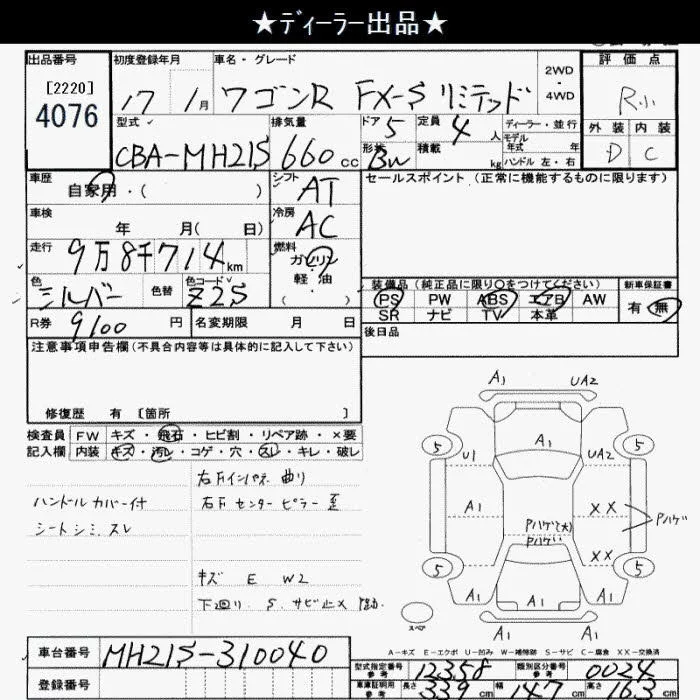 ★ディーラー出品★
出品番号
[2220]
4076
初度登録年月
17 1月
車名・グレード
ワゴンR FX-S リミテッド
2WD
・
4WD
評価点
R小
外装 内装
D C
型式
CBA-MH21S
排気量
660 cc
ドア
5
定員
4人
形状
BW
積載
kg
ディーラー・並行
モデル年式 年
ハンドル 左・右
車歴
自家用・( )
シフト
AT
セールスポイント (正常に機能するものに限ります)
車検
年 月( 日)
冷房
AC
走行
9万8千714km
燃料
ガソリン
軽・油
( )
色
シルバー
色替
色コード
Z2S
装備品 (純正品に限り○をつけてください)
PS PW ABS エアB AW
SR ナビ TV 本革
新車保証書
有・無
R券
9100円
名変期限 月 日
後日品
注意事項申告欄(不具合内容等は具体的に記入して下さい)
修復歴 有 [箇所 ]
検査員記入欄
FW キズ・飛石・ヒビ割・リペア跡・×要
内装 キズ・汚レ・コゲ・穴・スレ・キレ・破レ
ハンドルカバー付
シートシミ、スレ
右Fインパネ 曲り
右F センターピラー 歪
キズ E W2
下回り S. サビ止×
A1 UA2
A1
5 5
U1 UA2
A1 XX
Pハゲ(大)
Pハゲ
Pハゲ
XX
5 5
A1 A1
A1
スペア
A1
A-キズ E-エクボ U-凹み W-補修跡 S-サビ C-腐食 XX-交換済
車台番号
MH21S-310040
登録番号
型式指定番号
参考
12358
類別区分番号
参考
0024
車庫証明用
参考
長さ
339cm
幅
147cm
高さ
163cm